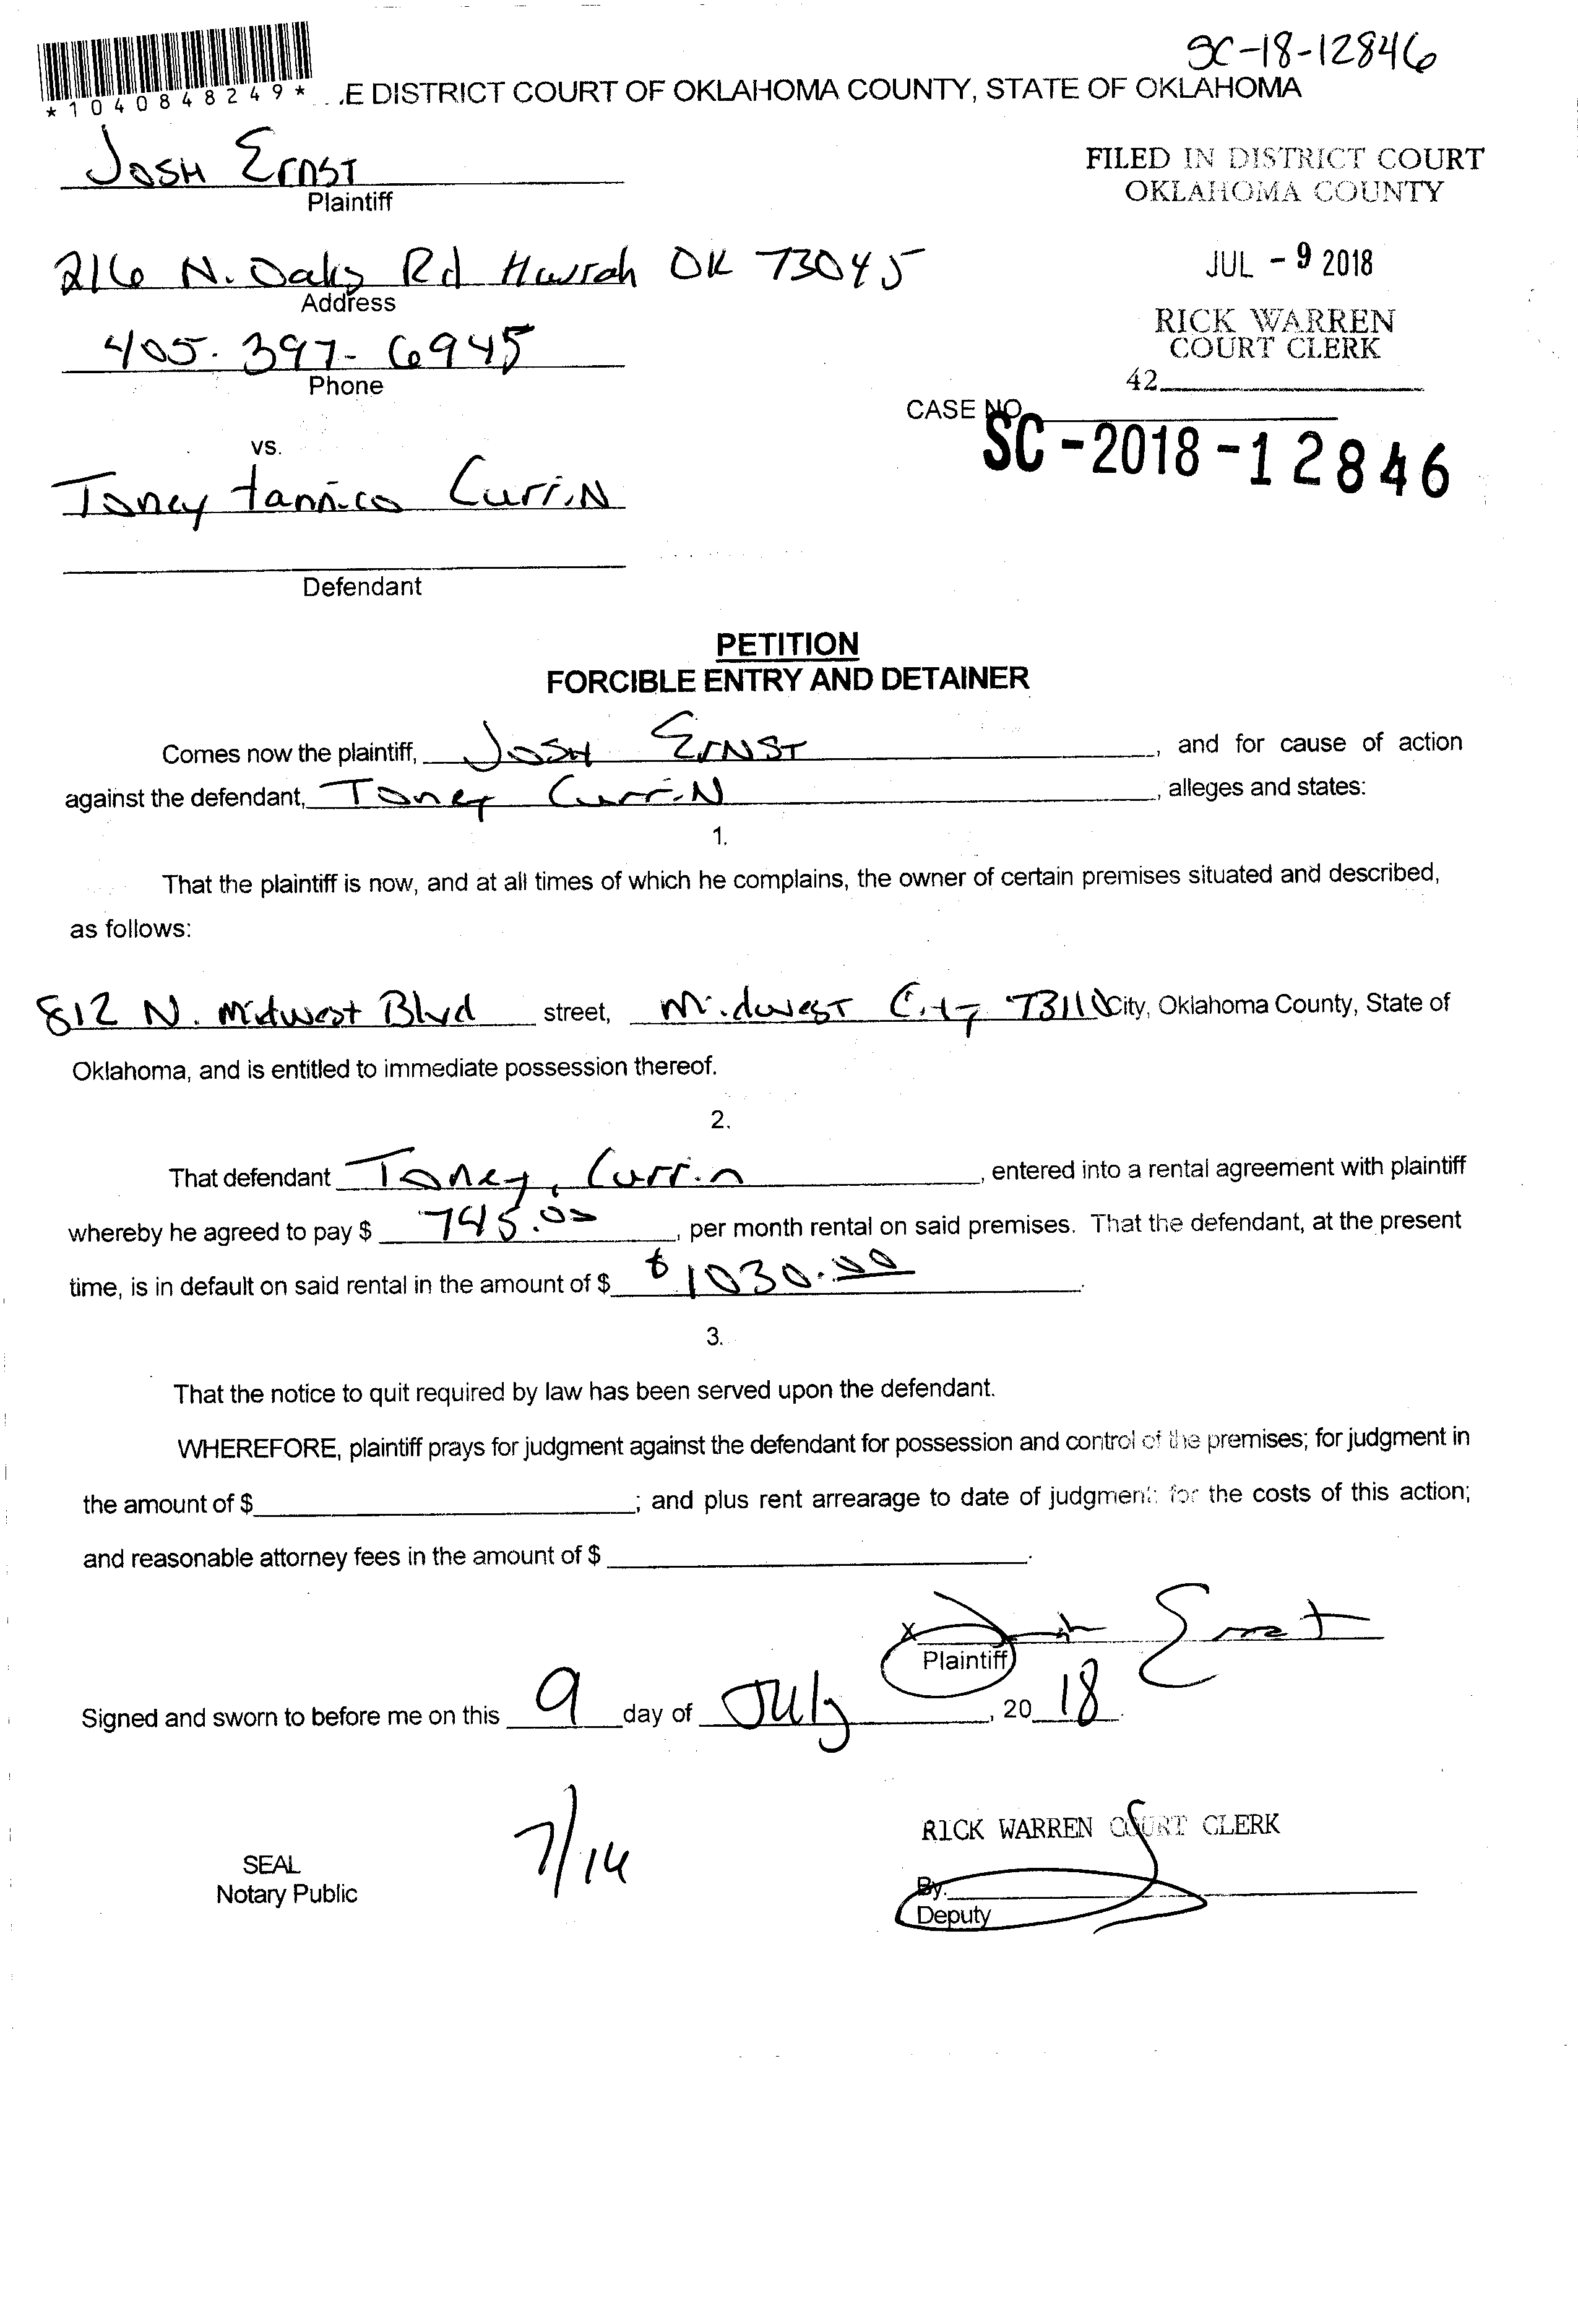 SC-18-12846
*1040848249* .E DISTRICT COURT OF OKLAHOMA COUNTY, STATE OF OKLAHOMA
Josh Ernst
Plaintiff
FILED IN DISTRICT COURT
OKLAHOMA COUNTY
216 N. Oaks Rd Harrah OK 73045
Address
JUL - 9 2018
405. 397- 6945
Phone
RICK WARREN
COURT CLERK
42
CASE NO.
SC-2018-12846
vs.
Toney tannica Currin
Defendant
PETITION
FORCIBLE ENTRY AND DETAINER
Comes now the plaintiff, Josh Ernst, and for cause of action
against the defendant, Toney Currin, alleges and states:
1.
That the plaintiff is now, and at all times of which he complains, the owner of certain premises situated and described,
as follows:
812 N. Midwest Blvd street, Midwest City 73110 City, Oklahoma County, State of
Oklahoma, and is entitled to immediate possession thereof.
2.
That defendant Toney, Currin, entered into a rental agreement with plaintiff
whereby he agreed to pay $ 745.00, per month rental on said premises. That the defendant, at the present
time, is in default on said rental in the amount of $ $1030.00.
3.
That the notice to quit required by law has been served upon the defendant.
WHEREFORE, plaintiff prays for judgment against the defendant for possession and control of the premises; for judgment in
the amount of $ ; and plus rent arrearage to date of judgment; for the costs of this action;
and reasonable attorney fees in the amount of $ .
x Josh Ernst
Plaintiff
Signed and sworn to before me on this 9 day of July, 20 18.
7/16
RICK WARREN COURT CLERK
SEAL
Notary Public
By.
Deputy